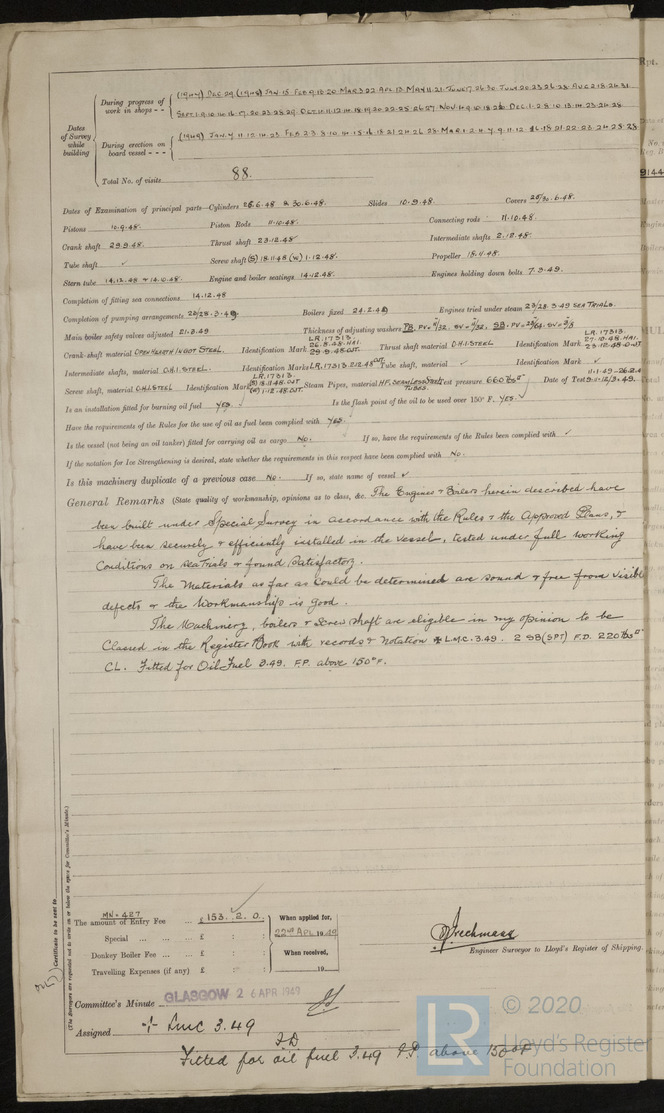 During progress of work in shops - - (1947) DEC 29 (1948) JAN 15 FEB 9.13.20 MAR 3.22 APR 13 MAY 11.21 JUNE 7.26.30 JULY 20.23.26.28 AUG 2.18.26.31
SEPT 1.9.10.14.16.17.20.23.28.29 OCT 11.12.14.18.19.20.22.25.26.27 NOV 4.9.10.18.26 DEC 1.2.8.10.13.14.23.24.28
Dates of Survey while building
During erection on board vessel - - - (1949) JAN 4.11.12.14.23 FEB 2.3.8.10.14.15.16.18.21.24.26.28 MAR 1.2.4.7.9.11.12.16.18.21.22.23.24.25.28
Total No. of visits 88.
Dates of Examination of principal parts—Cylinders 25.6.48 & 30.6.48. Slides 10.9.48. Covers 25/30.6.48.
Pistons 10.9.48. Piston Rods 11.10.48. Connecting rods 11.10.48.
Crank shaft 29.9.48. Thrust shaft 23.12.48 Intermediate shafts 2.12.48.
Tube shaft ✓ Screw shaft (S) 18.11.48 (W) 1.12.48. Propeller 18.11.48.
Stern tube 14.12.48 Engine and boiler seatings 14.12.48. Engines holding down bolts 7.3.49.
Completion of fitting sea connections 14.12.48
Completion of pumping arrangements 22/28.3.49. Boilers fixed 24.2.49 Engines tried under steam 23/28.3.49 SEA TRIALS.
Main boiler safety valves adjusted 21.3.49 Thickness of adjusting washers
Crank shaft material OPEN HEARTH INGOT STEEL. Identification Mark LR.17313. 26.8.48.HAI. 29.9.48.OJT. Thrust shaft material O.H.I.STEEL Identification Mark LR.17313. 27.10.48.HAI. 23.12.48.OJT
Intermediate shafts, material O.H.I.STEEL. Identification Marks LR.17313 2.12.48 OJT Tube shaft, material ✓ Identification Mark ✓
Screw shaft, material O.H.I.STEEL Identification Mark LR.17313. (S) 18.11.48.OJT. (W) 1.12.48.OJT. Steam Pipes, material H.F. SEAMLESS STEEL TUBES. Test pressure 660 lbs□" Date of Test
Is an installation fitted for burning oil fuel YES. Is the flash point of the oil to be used over 150° F. YES.
Have the requirements of the Rules for the use of oil as fuel been complied with YES.
Is the vessel (not being an oil tanker) fitted for carrying oil as cargo NO. If so, have the requirements of the Rules been complied with ✓
If the notation for Ice Strengthening is desired, state whether the requirements in this respect have been complied with NO.
Is this machinery duplicate of a previous case NO. If so, state name of vessel ✓
General Remarks (State quality of workmanship, opinions as to class, &c. The Engines & Boilers herein described have
been built under Special Survey in accordance with the Rules & the Approved Plans, &
have been securely & efficiently installed in the vessel, tested under full working
Conditions on sea trials & found satisfactory.
The Materials as far as could be determined are sound & free from visible
defects & the Workmanship is good.
The Machinery, boilers & Screw shaft are eligible in my opinion to be
Classed in the Register Book with records & notation ✠ L.M.C. 3.49. 2 SB (SPT) F.D. 220 lbs□"
CL. Fitted for Oil Fuel 3.49. F.P. above 150°F.
(The Surveyors are requested not to write on or below the space for Committee's Minute.)
Certificate to be sent to
MN = 427
The amount of Entry Fee ... £ 153. 2. 0. When applied for, 22nd APL 1949
Special ... ... ... £ : :
Donkey Boiler Fee ... ... £ : : When received,
Travelling Expenses (if any) £ : : 19
Engineer Surveyor to Lloyd's Register of Shipping.
Committee's Minute GLASGOW 26 APR 1949
Assigned + LMC 3.49
FD
Fitted for oil fuel 3.49 F.P. above 150°F
LR
© 2020
Lloyd's Register
Foundation